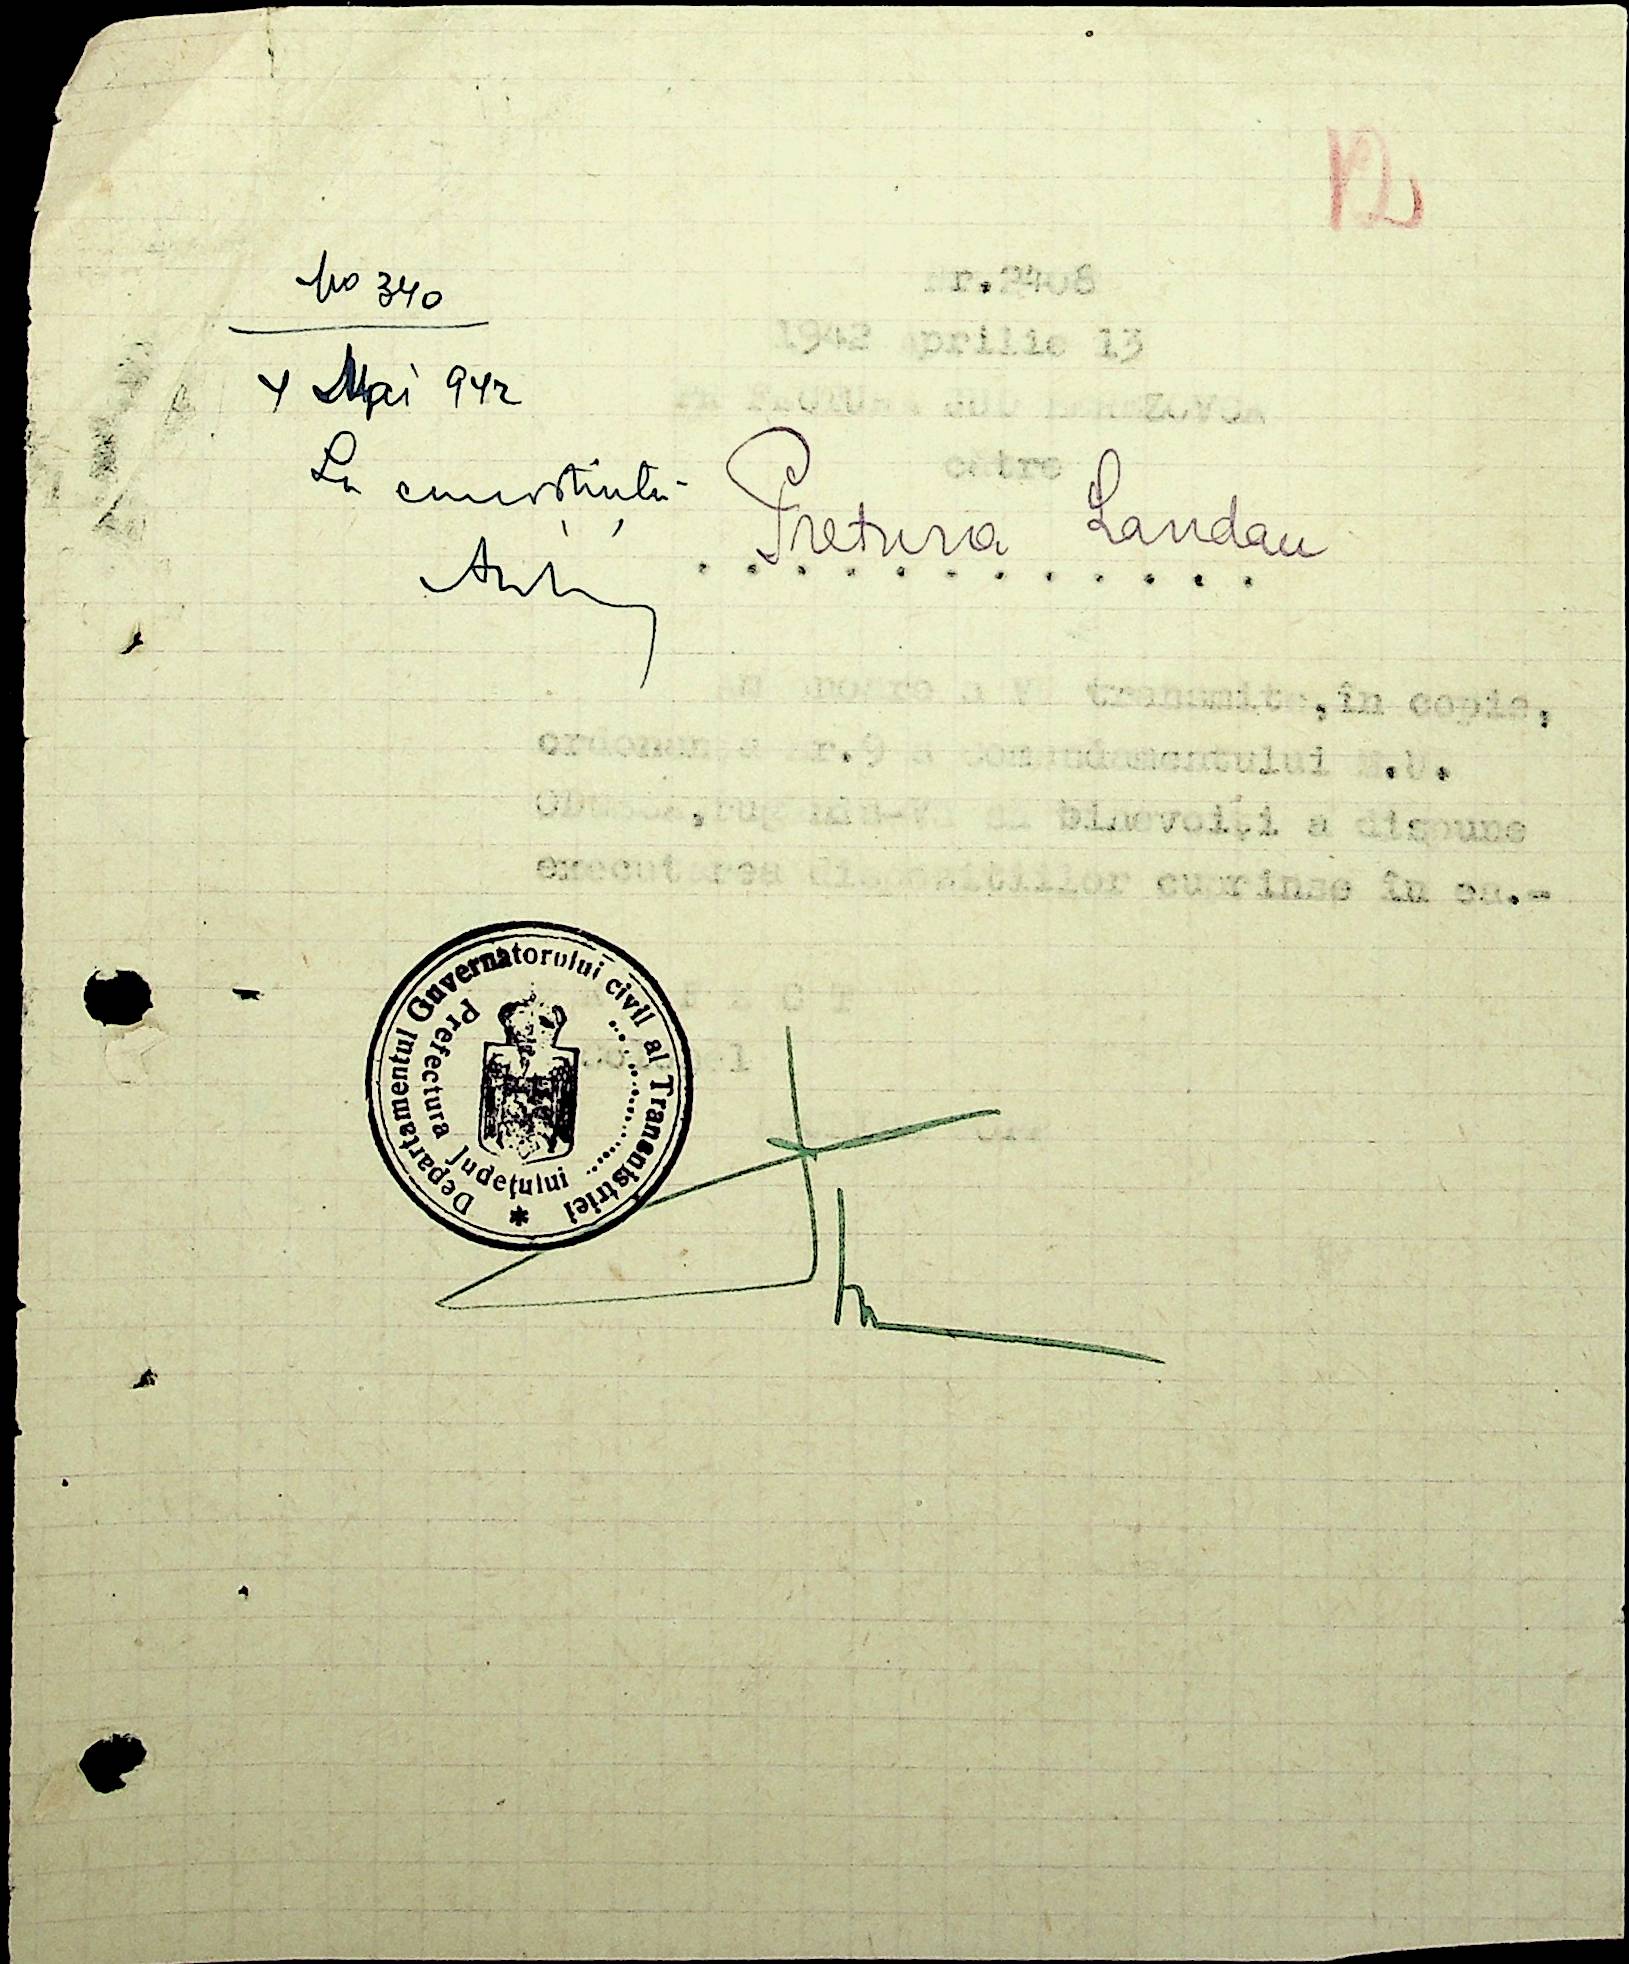 12
No 340
4 Mai 942
La cunoștință
Nr.2408
1942 Aprilie 13
către
Pretura Landau
. . . . . . . . . . . .
Am onoare a Vă transmite,în copie,
ordonanța Nr.9 a Comandamentului M.O.
Odessa,rugându-Vă să binevoiți a dispune
executarea dispozițiilor cuprinse în ea.-
Departamentul Guvernatorului civil al Transnistriei
Prefectura Județului